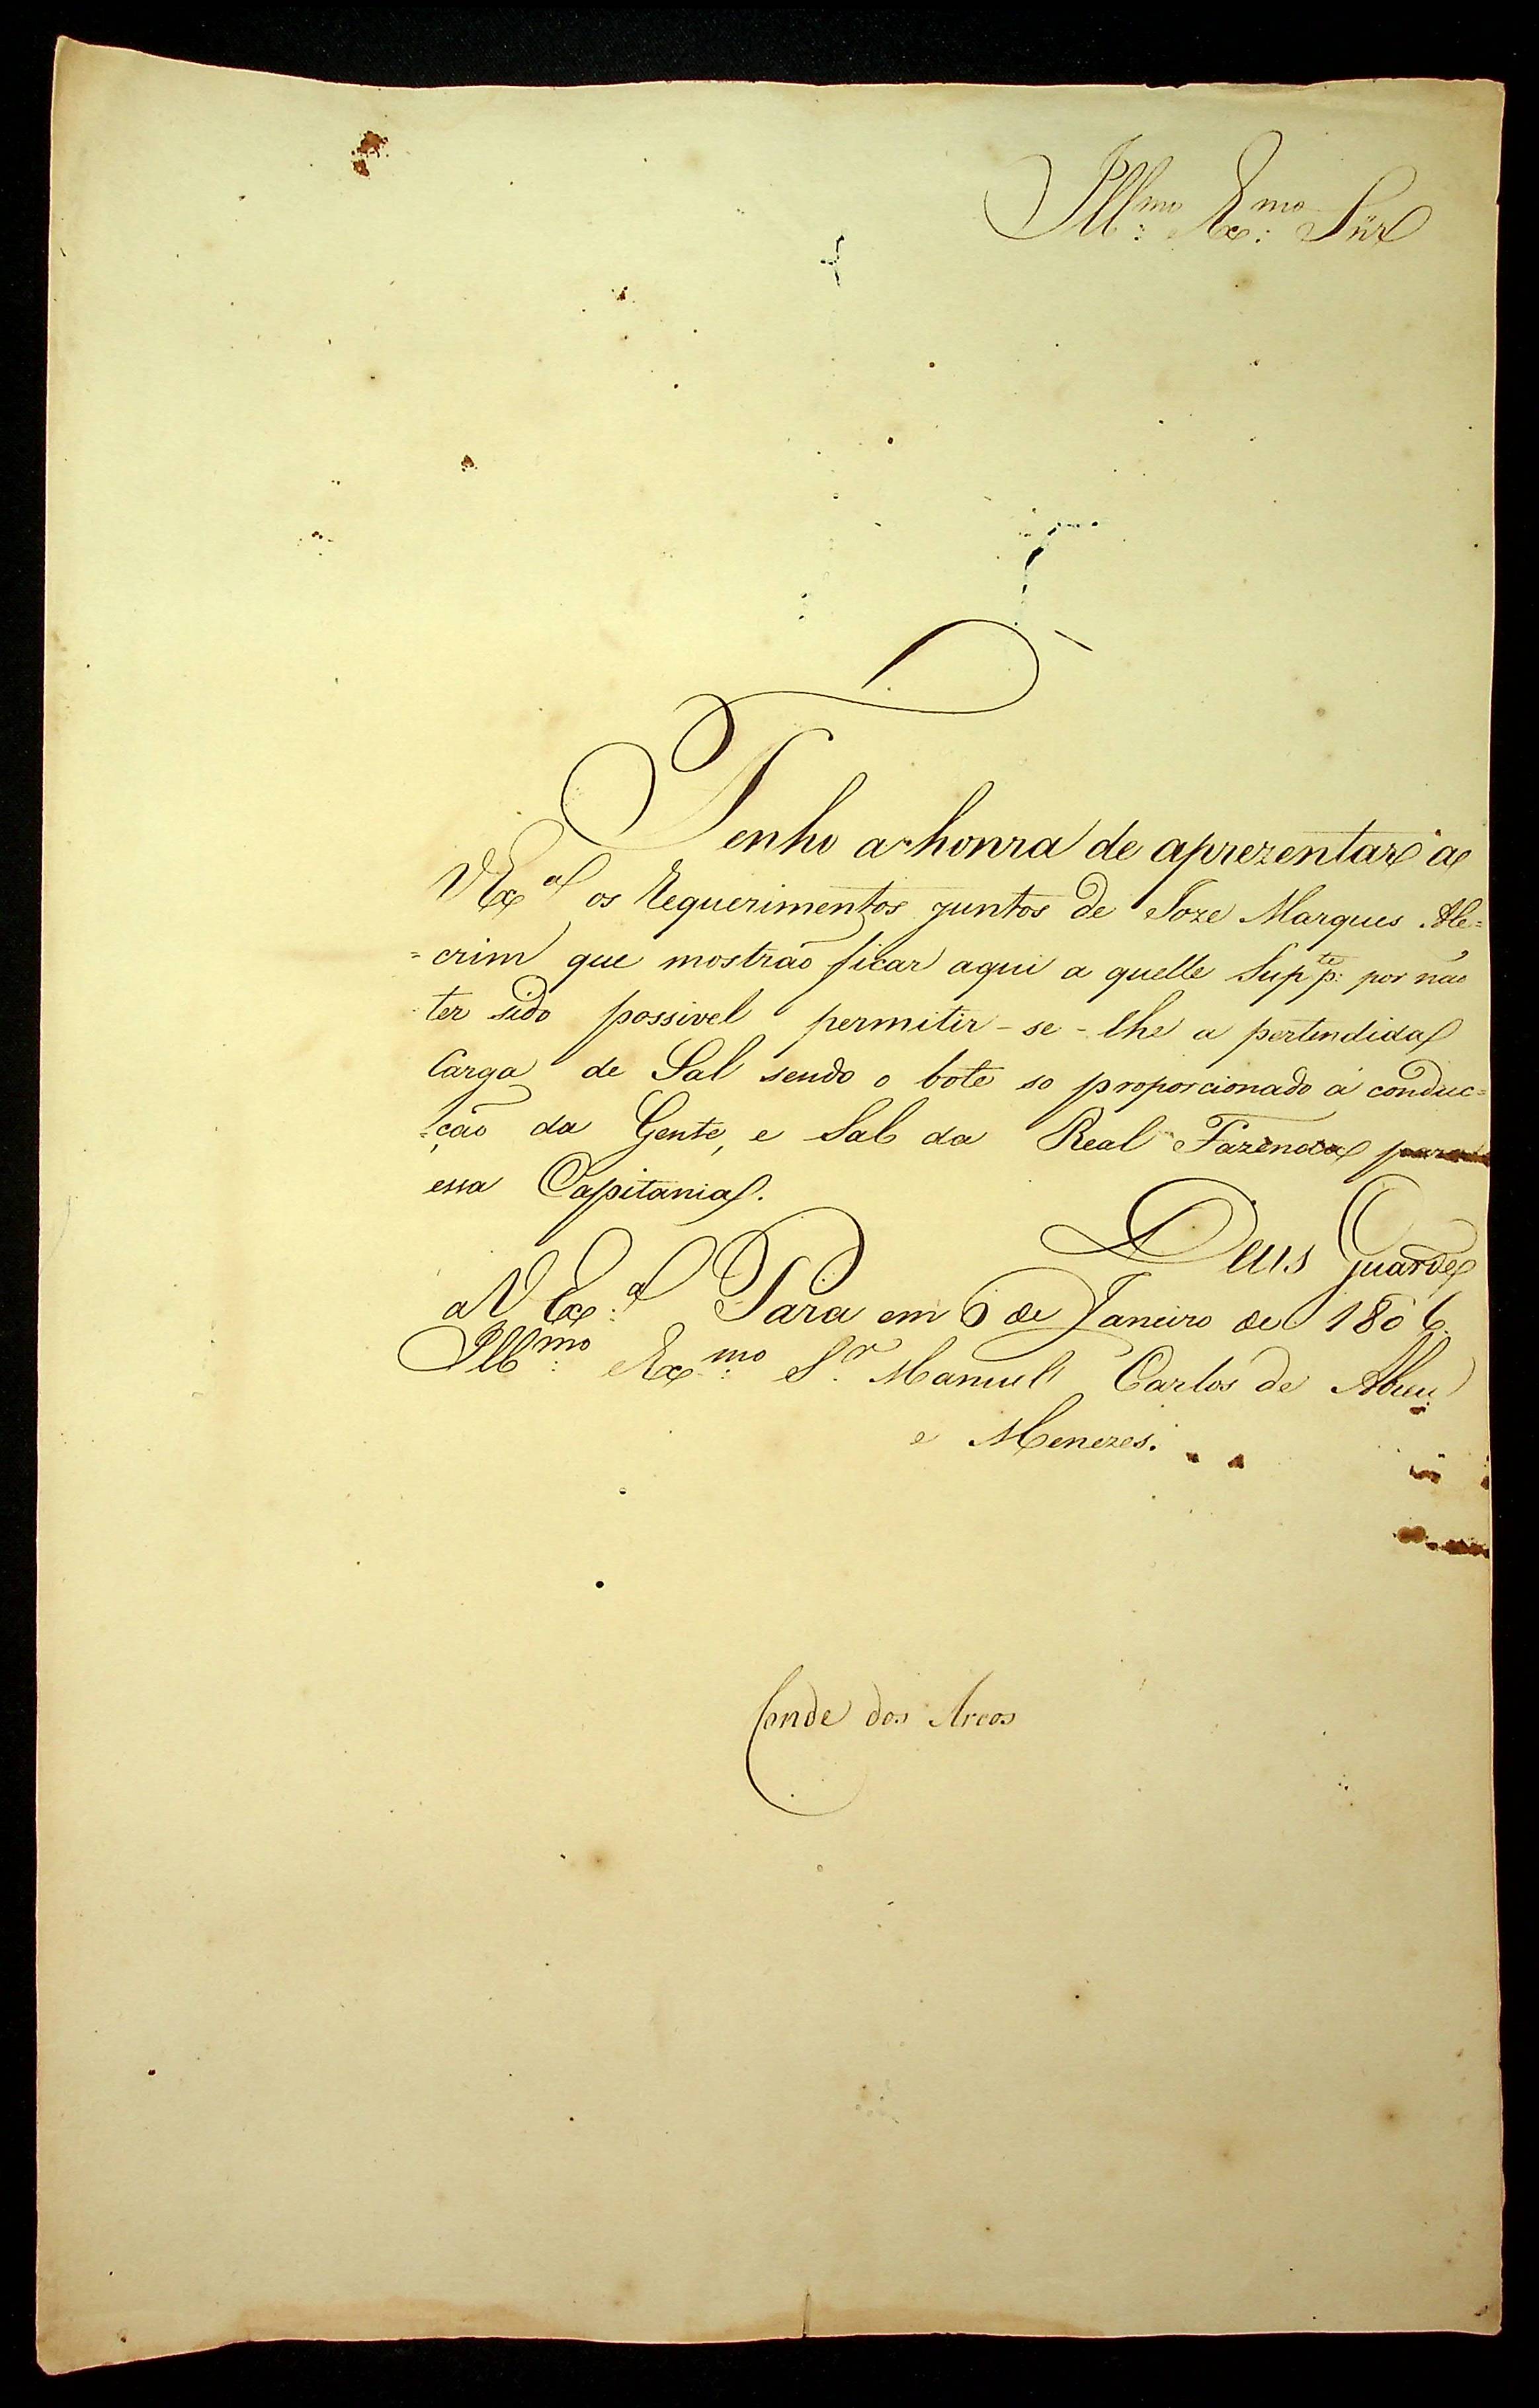 Ill.mo Ex.mo Snr
Tenho a honra de aprezentar a
V Exa os Requerimentos juntos de Joze Marques Ale=
=crim que mostrão ficar aqui a quelle Supp.te por não
ter sido possivel permitir-se-lhe a pertendida
Carga de Sal sendo o bote so proporcionado á conduc=
=ção da Gente, e Sal da Real Fazenda para
essa Capitania.
Deus Guarde
a V Ex.a Pará em 6 de Janeiro de 1806.
Ill.mo Ex.mo S.r Manuel Carlos de Abreu
e Menezes.
Conde dos Arcos